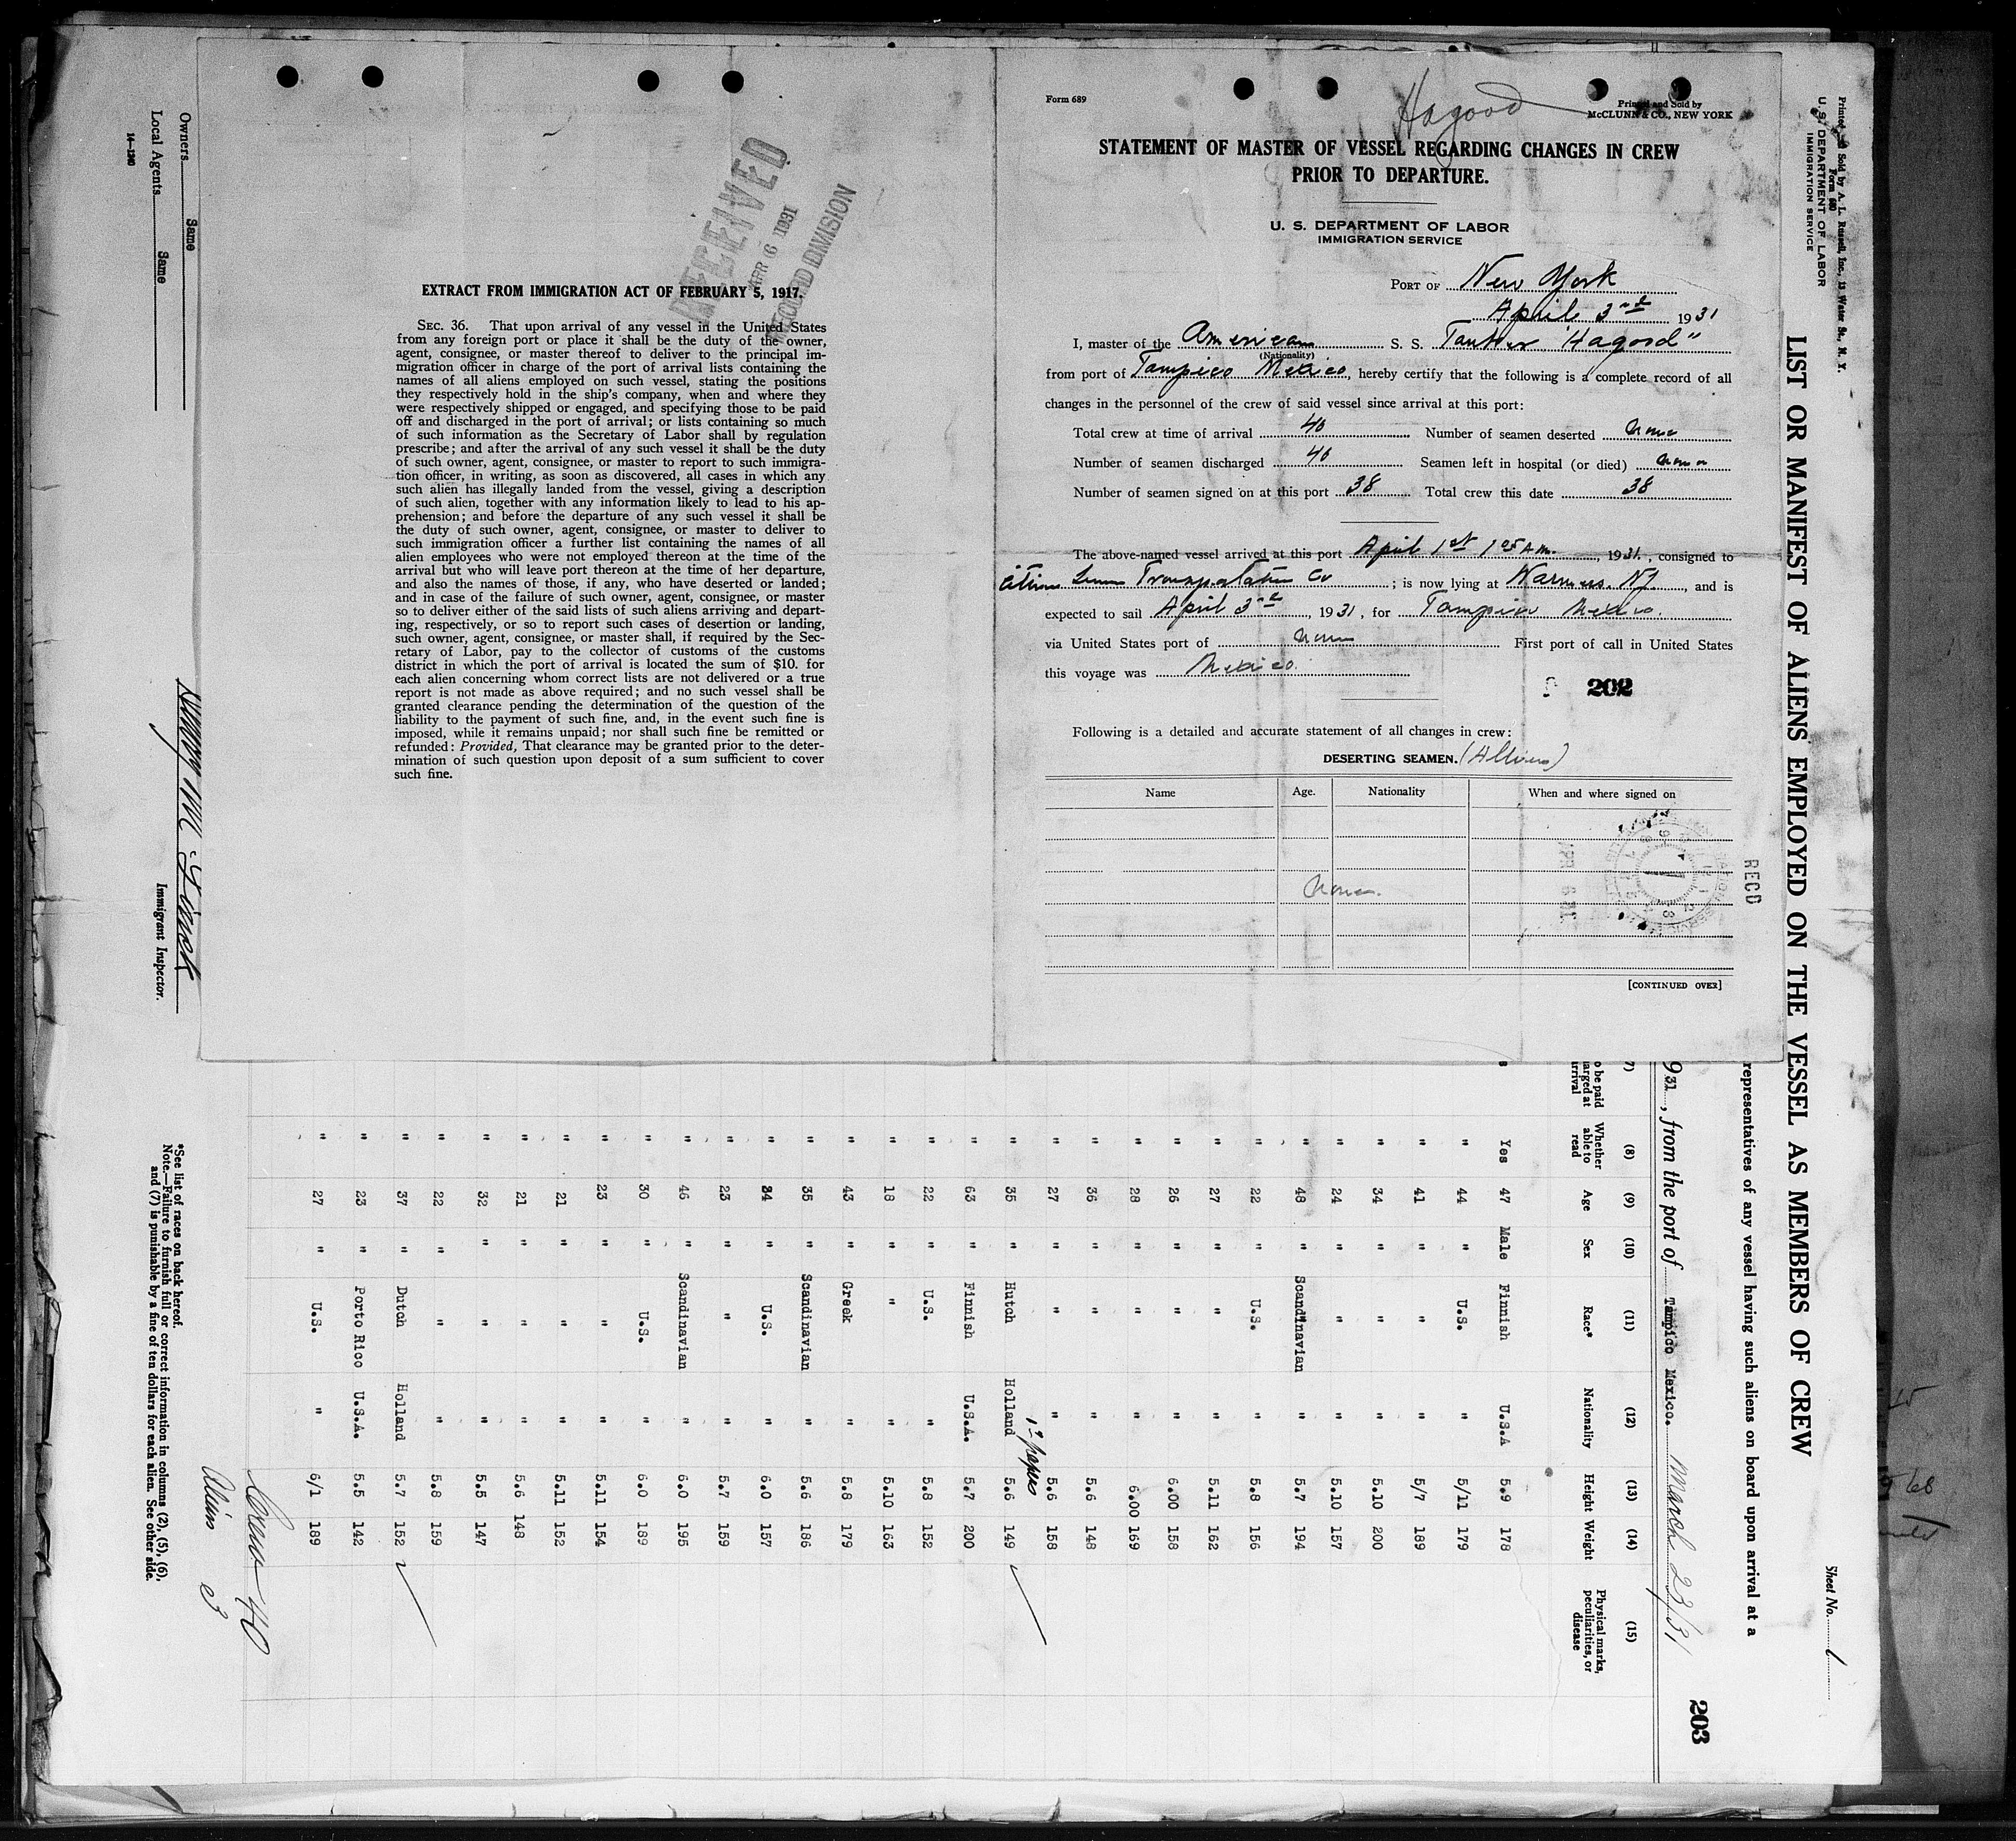 Form 689
Hagood
Printed and Sold by
McCLUNN & CO., NEW YORK
STATEMENT OF MASTER OF VESSEL REGARDING CHANGES IN CREW
PRIOR TO DEPARTURE.
U. S. DEPARTMENT OF LABOR
IMMIGRATION SERVICE
PORT OF New York
April 3rd 1931
I, master of the American S. S. Tanker "Hagood"
(Nationality)
from port of Tampico Mexico, hereby certify that the following is a complete record of all
changes in the personnel of the crew of said vessel since arrival at this port:
Total crew at time of arrival 40 Number of seamen deserted none
Number of seamen discharged 40 Seamen left in hospital (or died) none
Number of seamen signed on at this port 38 Total crew this date 38
The above-named vessel arrived at this port April 1st 1 05 A.M. , 1931 , consigned to
Transportation Co ; is now lying at Warners. NJ , and is
expected to sail April 3rd , 1931 , for Tampico Mexico.
via United States port of none First port of call in United States
this voyage was Mexico.
202
Following is a detailed and accurate statement of all changes in crew:
DESERTING SEAMEN. (Aliens)
Name Age. Nationality When and where signed on
None.
APR 6
RECD
[CONTINUED OVER]
RECEIVED
APR 6 1931
RECORD DIVISION
EXTRACT FROM IMMIGRATION ACT OF FEBRUARY 5, 1917.
SEC. 36. That upon arrival of any vessel in the United States
from any foreign port or place it shall be the duty of the owner,
agent, consignee, or master thereof to deliver to the principal im-
migration officer in charge of the port of arrival lists containing the
names of all aliens employed on such vessel, stating the positions
they respectively hold in the ship's company, when and where they
were respectively shipped or engaged, and specifying those to be paid
off and discharged in the port of arrival; or lists containing so much
of such information as the Secretary of Labor shall by regulation
prescribe; and after the arrival of any such vessel it shall be the duty
of such owner, agent, consignee, or master to report to such immigra-
tion officer, in writing, as soon as discovered, all cases in which any
such alien has illegally landed from the vessel, giving a description
of such alien, together with any information likely to lead to his ap-
prehension; and before the departure of any such vessel it shall be
the duty of such owner, agent, consignee, or master to deliver to
such immigration officer a further list containing the names of all
alien employees who were not employed thereon at the time of the
arrival but who will leave port thereon at the time of her departure,
and also the names of those, if any, who have deserted or landed;
and in case of the failure of such owner, agent, consignee, or master
so to deliver either of the said lists of such aliens arriving and depart-
ing, respectively, or so to report such cases of desertion or landing,
such owner, agent, consignee, or master shall, if required by the Sec-
retary of Labor, pay to the collector of customs of the customs
district in which the port of arrival is located the sum of $10. for
each alien concerning whom correct lists are not delivered or a true
report is not made as above required; and no such vessel shall be
granted clearance pending the determination of the question of the
liability to the payment of such fine, and, in the event such fine is
imposed, while it remains unpaid; nor shall such fine be remitted or
refunded: Provided, That clearance may be granted prior to the deter-
mination of such question upon deposit of a sum sufficient to cover
such fine.
Printed and Sold by A. L. Russell, Inc., 15 Water St., N. Y.
Form 680
U. S. DEPARTMENT OF LABOR
IMMIGRATION SERVICE
Sheet No. 1
LIST OR MANIFEST OF ALIENS EMPLOYED ON THE VESSEL AS MEMBERS OF CREW
representatives of any vessel having such aliens on board upon arrival at a
203
931 , from the port of Tampico Mexico. March 23/31
7) (8) (9) (10) (11) (12) (13) (14) (15)
o be paid
arged at
rrival
Whether
able to
read
Age Sex Race* Nationality Height Weight
Physical marks,
peculiarities, or
disease
Yes 47 Male Finnish U.S.A 5.9 178
" 44 " U.S. " 5/11 179
" 41 " " " 5/7 189
" 34 " " " 5.10 200
" 24 " " " 5.10 157
" 48 " Scandinavian " 5.7 194
" 22 " U.S. " 5.8 156
" 27 " " " 5.11 162
" 26 " " " 6.00 158
" 28 " " " 6.00 169
" 36 " " " 5.6 148
" 27 " " " 5.6 158
1st papers
" 35 " Hutch Holland 5.6 149
" 63 " Finnish U.S.A. 5.7 200
" 22 " U.S. " 5.8 152
" 18 " " " 5.10 163
" 43 " Greek " 5.8 179
" 35 " Scandinavian " 5.6 186
" 34 " U.S. " 6.0 157
" 23 " " " 5.7 159
" 46 " Scandinavian " 6.0 195
" 30 " U.S. " 6.0 189
" 23 " " " 5.11 154
" 21 " " " 5.11 152
" 21 " " " 5.6 148
" 32 " " " 5.5 147
" 22 " " " 5.8 159
" 37 " Dutch Holland 5.7 152
" 23 " Porto Rico U.S.A. 5.5 142
" 27 " U.S. " 6/1 189
Crew 40
Aliens 3
Owners Same
Local Agents Same
14—1240
Immigrant Inspector.
*See list of races on back hereof.
Note.—Failure to furnish full or correct information in columns (2), (5), (6),
and (7) is punishable by a fine of ten dollars for each alien. See other side.